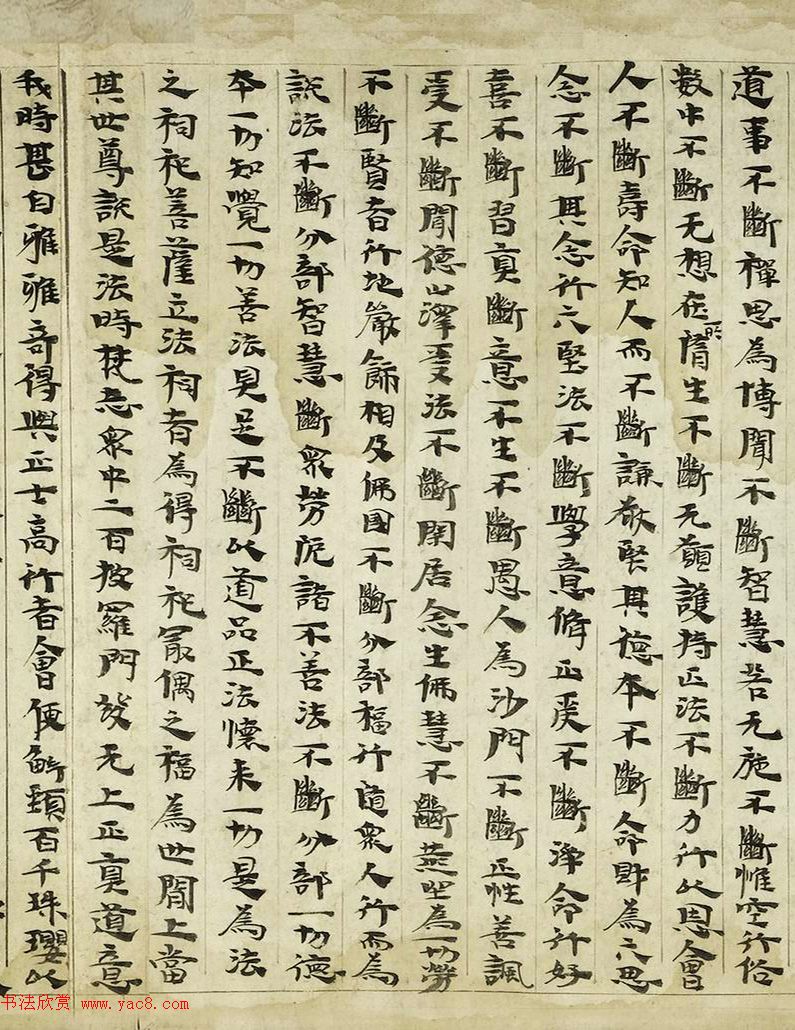 道事不斷禪思為博聞不斷智慧若无施不斷惟空行俗
數中不斷无想在所墮生不斷无願護持正法不斷力行此恩會
人不斷壽命知人而不斷謙敬堅其德本不斷命財為六思
念不斷其念行六堅法不斷學意脩正受不斷淨命行好
喜不斷習真斷意不生不斷愚人為沙門不斷正性善諷
受不斷聞德山澤受法不斷閑居念生佛慧不斷燕坐為一切勞
不斷賢者行地嚴飾相及佛國不斷分部福行隨眾人行而為
說法不斷分部智慧斷眾勞院諸不善法不斷分部一切德
本一切知覺一切善法具足不斷此道品正法懷来一切是為法
之祠祀菩薩立法祠者為得祠祀冣偶之福為世間上當
其世尊說是法時梵志眾中二百披羅門發无上正真道意
我時甚自雅雅奇得與正士高行者會便解頸百千珠瓔此
书法欣赏 www.yac8.com